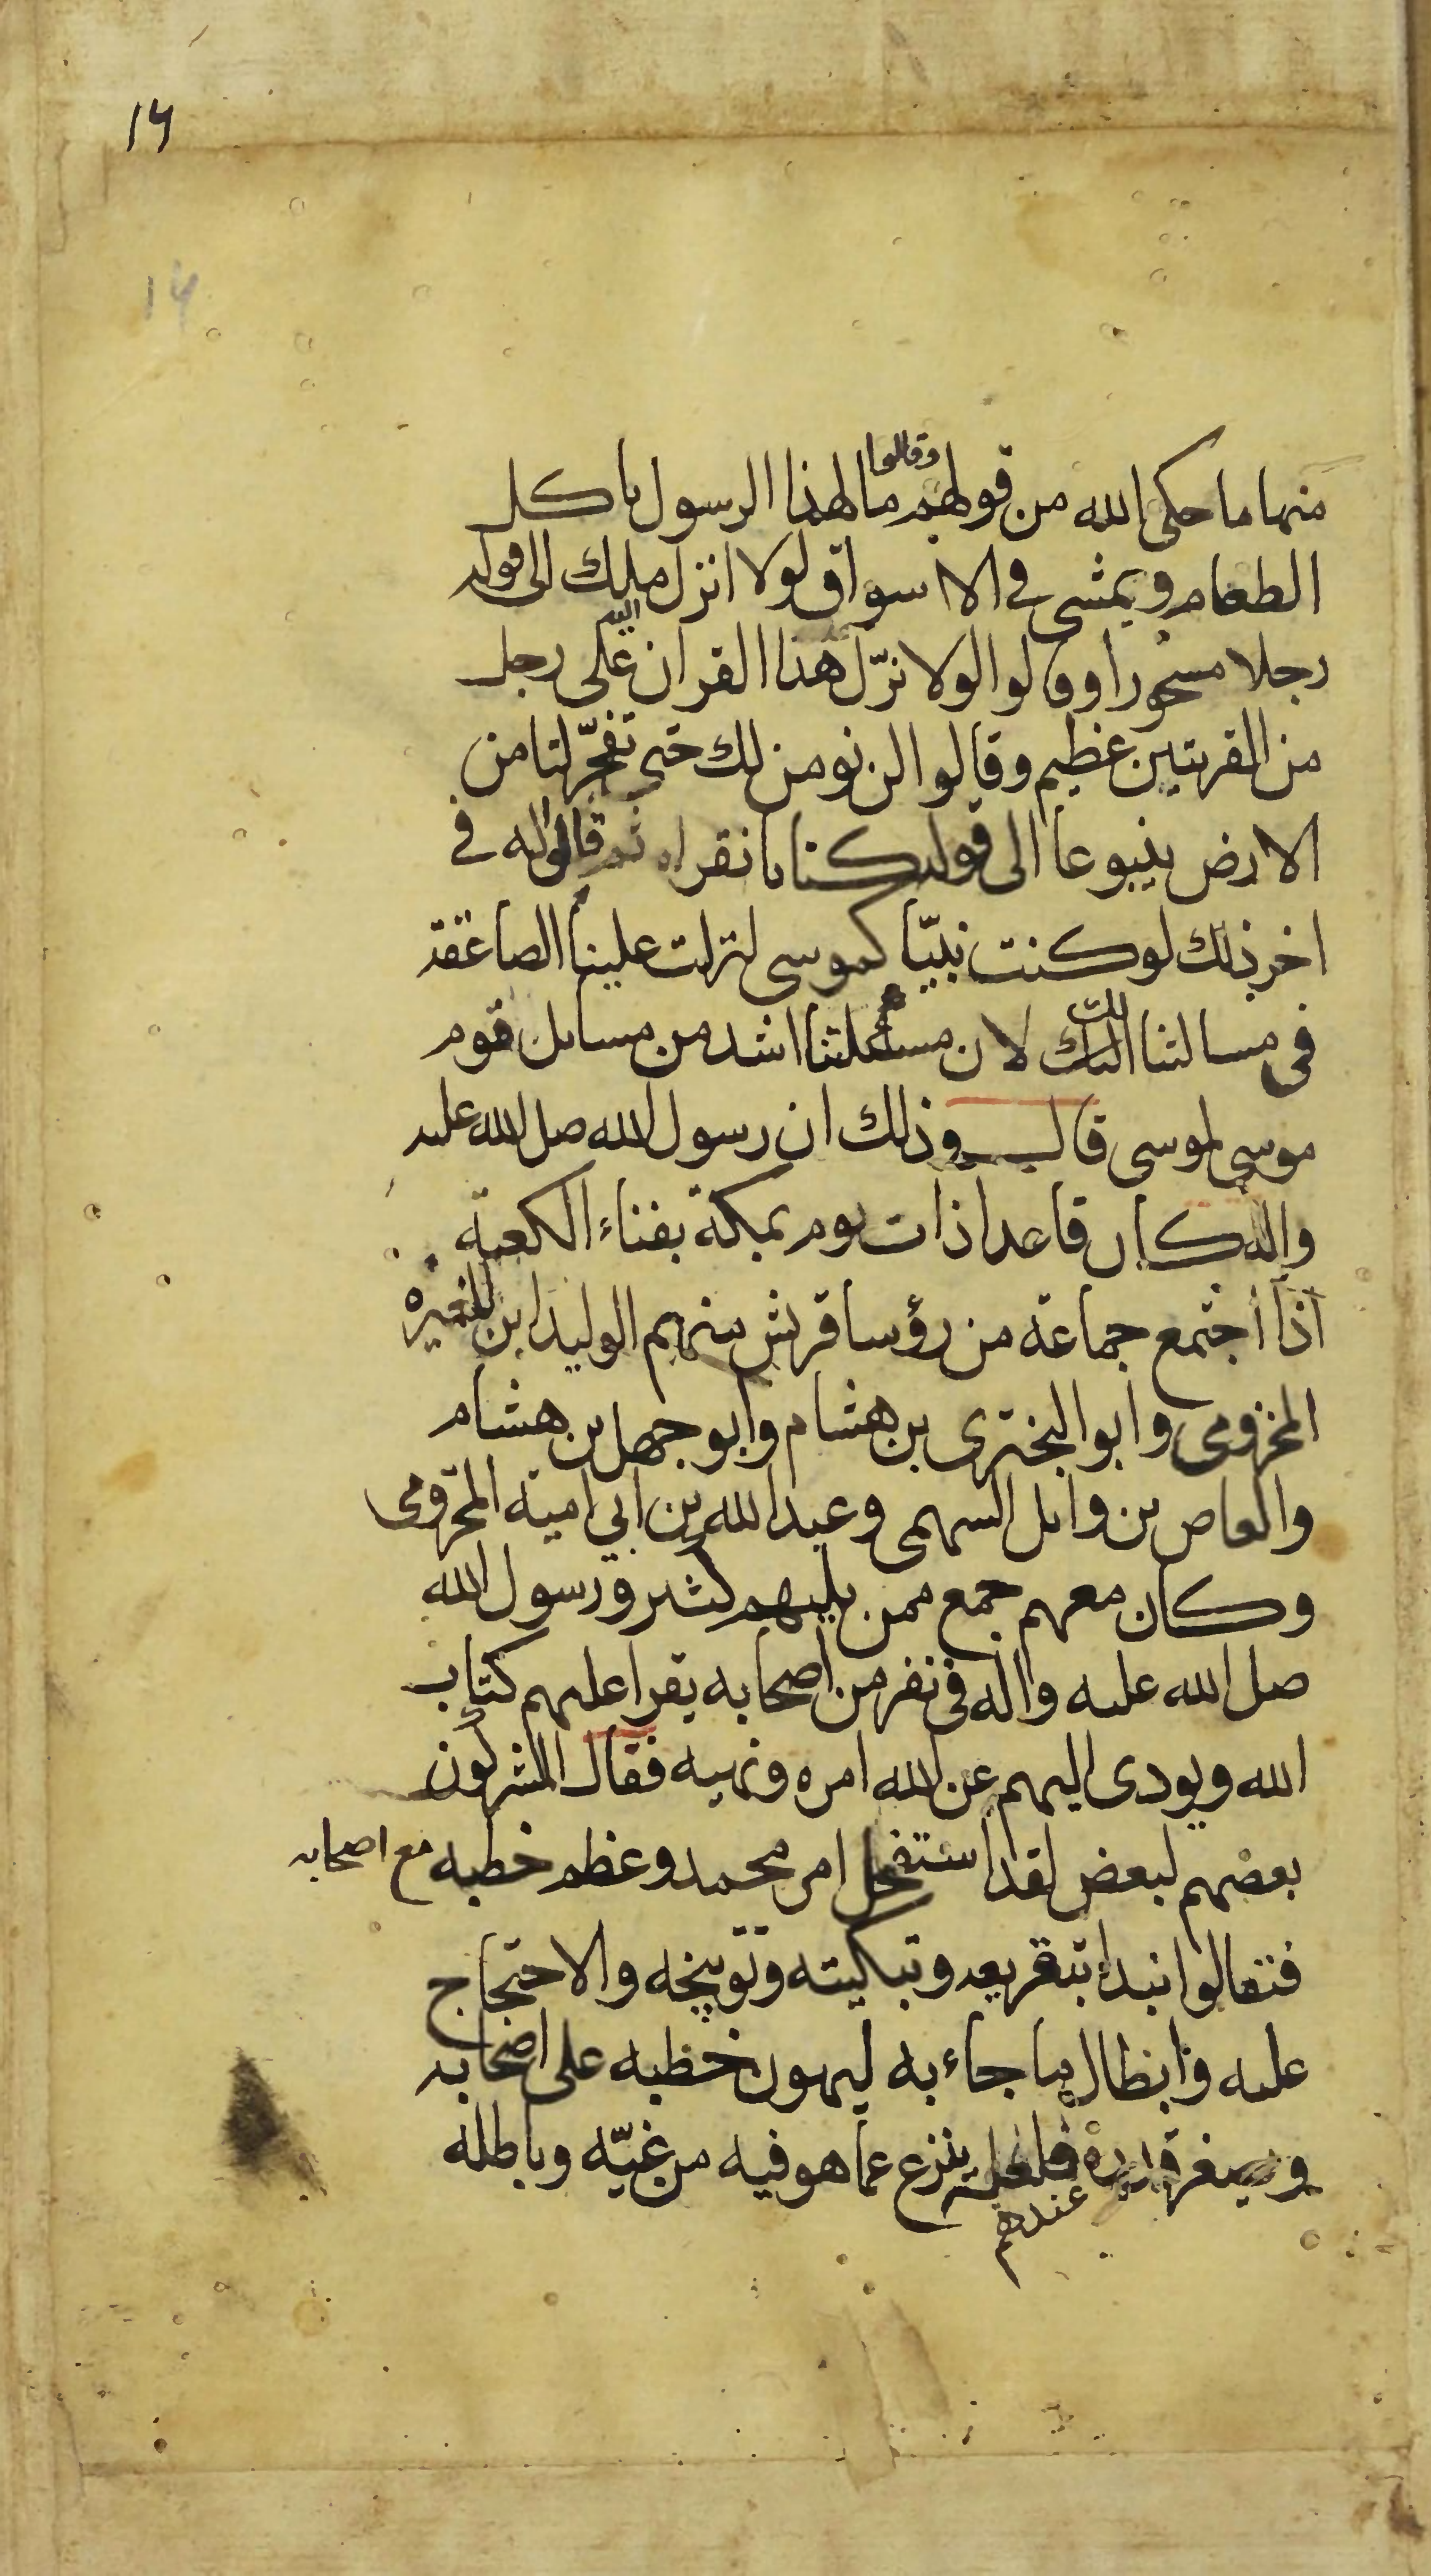 ١٤
١٤
منها ما حكى الله من قولهم وقالوا ما لهذا الرسول ياكل
الطعام ويمشي في الاسواق لولا انزل اليه ملك الى قوله
رجلا مسحورا وقالوا لولا نزّل هذا القران على رجل
من القريتين عظيم وقالوا لن نومن لك حتى تفجّر لنا من
الارض ينبوعا الى قوله كتابا نقراه ثم قالوا له في
اخر ذلك لو كنت نبيّا كموسى لنزلت علينا الصاعقة
في مسالتنا اليك لان مسئلتنا اشد من مسائل قوم
موسى لموسى قال وذلك ان رسول الله صل الله عليه
واله كان قاعدا ذات يوم بمكة بفناء الكعبة
اذا اجتمع جماعة من رؤسا قريش منهم الوليد ابن المغيره
المخزومى وابو البخترى بن هشام وابو جهل بن هشام
والعاص بن وائل السهمى وعبد الله بن ابي امية المخزومى
وكان معهم جمع ممن يليهم كثير ورسول الله
صل الله عليه واله في نفر من اصحابه يقرا عليهم كتاب
الله ويودى اليهم عن الله امره ونهيه فقال المشركون
بعضهم لبعض لقد استفحل امر محمد وعظم خطبه مع اصحابه
فتعالوا نبدا بتقريعه وتبكيته وتوبيخه والاحتجاج
عليه وابطال ما جاء به ليهون خطبه على اصحابه
ويصغر قدره عندهم فلعله ينزع عما هو فيه من غيّه وباطله